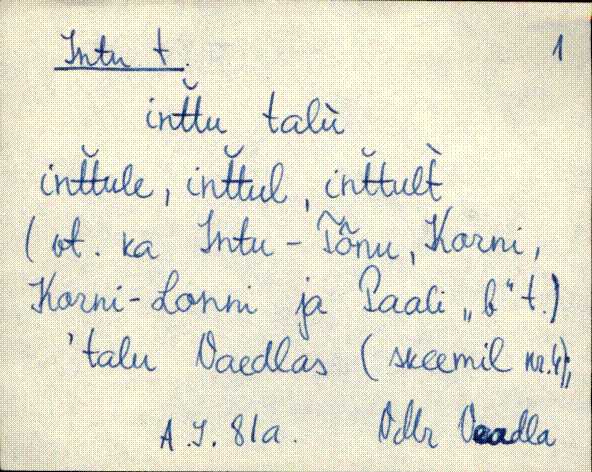 Intu t. 1
int̆tu talù
int̆tule, int̆tul, int̆tult̀
(vt. ka Intu-Tõnu, Korni,
Korni-Lonni ja Paali „b“ t.)
'talu Vaedlas (skeemil nr.4);
A.J. 81a. Vdlr Vaadla